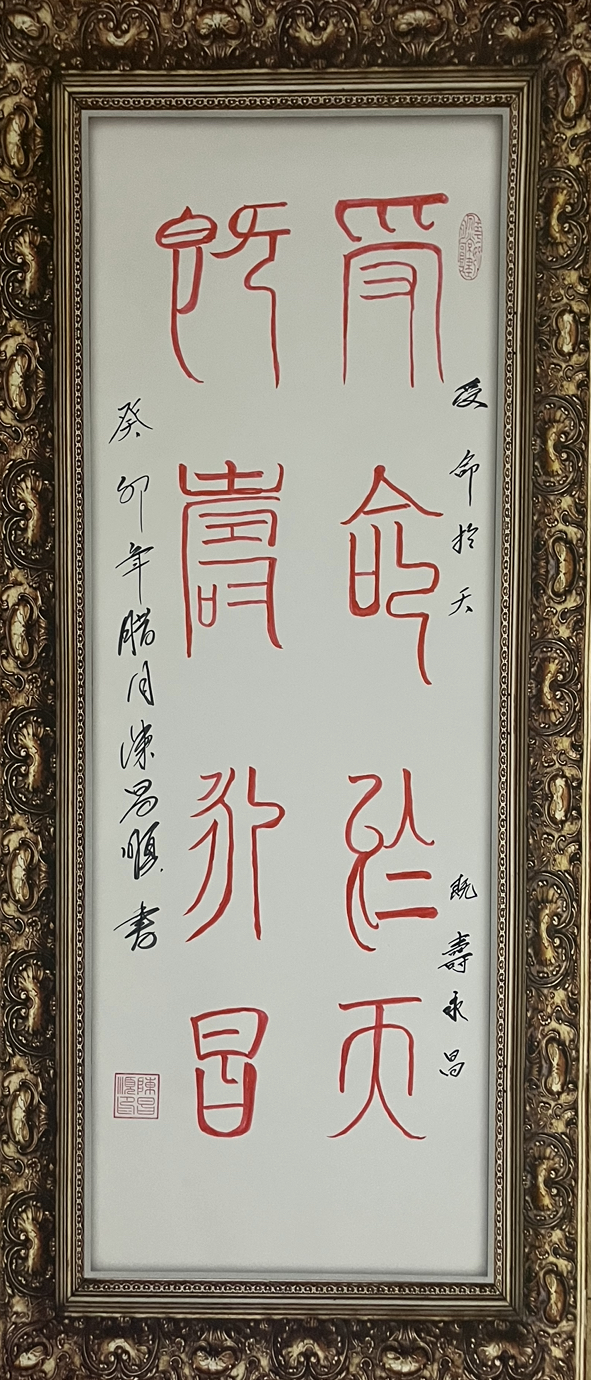 受命於天
既壽永昌
受命於天
既壽永昌
癸卯年腊月陳昌順書
陳昌順印